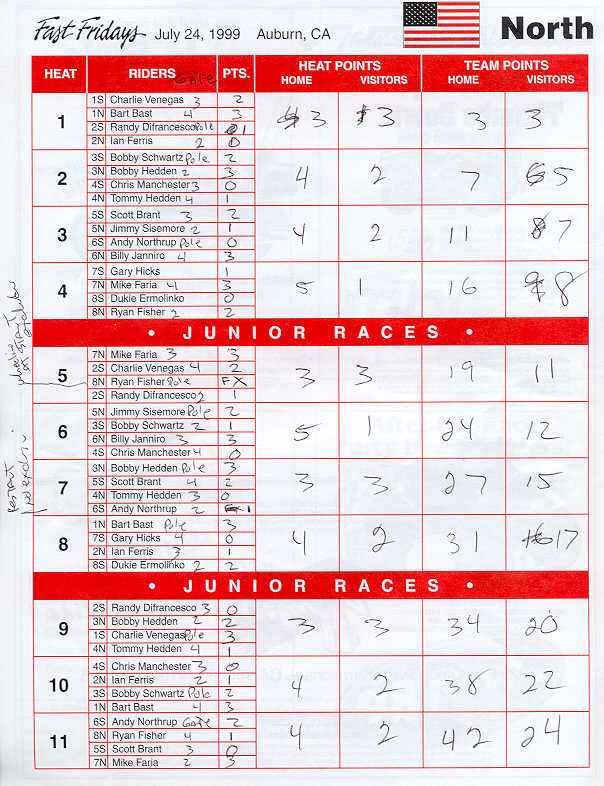 Fast Fridays July 24, 1999 Auburn, CA North
HEAT RIDERS Gate PTS. HEAT POINTS TEAM POINTS
HOME VISITORS HOME VISITORS
1S Charlie Venegas 3 2
1 1N Bart Bast 4 3 3 3 3 3
2S Randy Difrancesco Pole 1
2N Ian Ferris 2 0
3S Bobby Schwartz Pole 2
2 3N Bobby Hedden 2 3 4 2 7 5
4S Chris Manchester 3 0
4N Tommy Hedden 4 1
5S Scott Brant 3 2
3 5N Jimmy Sisemore 2 1 4 2 11 7
6S Andy Northrup Pole 0
6N Billy Janniro 4 3
7S Gary Hicks 1
4 7N Mike Faria 4 3 5 1 16 8
8S Dukie Ermolinko 0
8N Ryan Fisher 2 2
• JUNIOR RACES •
7N Mike Faria 3 3
5 2S Charlie Venegas 4 2 3 3 19 11
8N Ryan Fisher Pole FX
2S Randy Difrancesco 2 1
5N Jimmy Sisemore Pole 2
6 3S Bobby Schwartz 2 1 5 1 24 12
6N Billy Janniro 3 3
4S Chris Manchester 4 0
3N Bobby Hedden Pole 3
7 5S Scott Brant 4 2 3 3 27 15
4N Tommy Hedden 3 0
6S Andy Northrup 2 1
1N Bart Bast Pole 3
8 7S Gary Hicks 4 0 4 2 31 17
2N Ian Ferris 3 1
8S Dukie Ermolinko 2 2
• JUNIOR RACES •
2S Randy Difrancesco 3 0
9 3N Bobby Hedden 2 2 3 3 34 20
1S Charlie Venegas Pole 3
4N Tommy Hedden 4 1
4S Chris Manchester 3 0
10 2N Ian Ferris 2 1 4 2 38 22
3S Bobby Schwartz Pole 2
1N Bart Bast 4 3
6S Andy Northrup Gate 2
11 8N Ryan Fisher 4 1 4 2 42 24
5S Scott Brant 3 0
7N Mike Faria 2 3